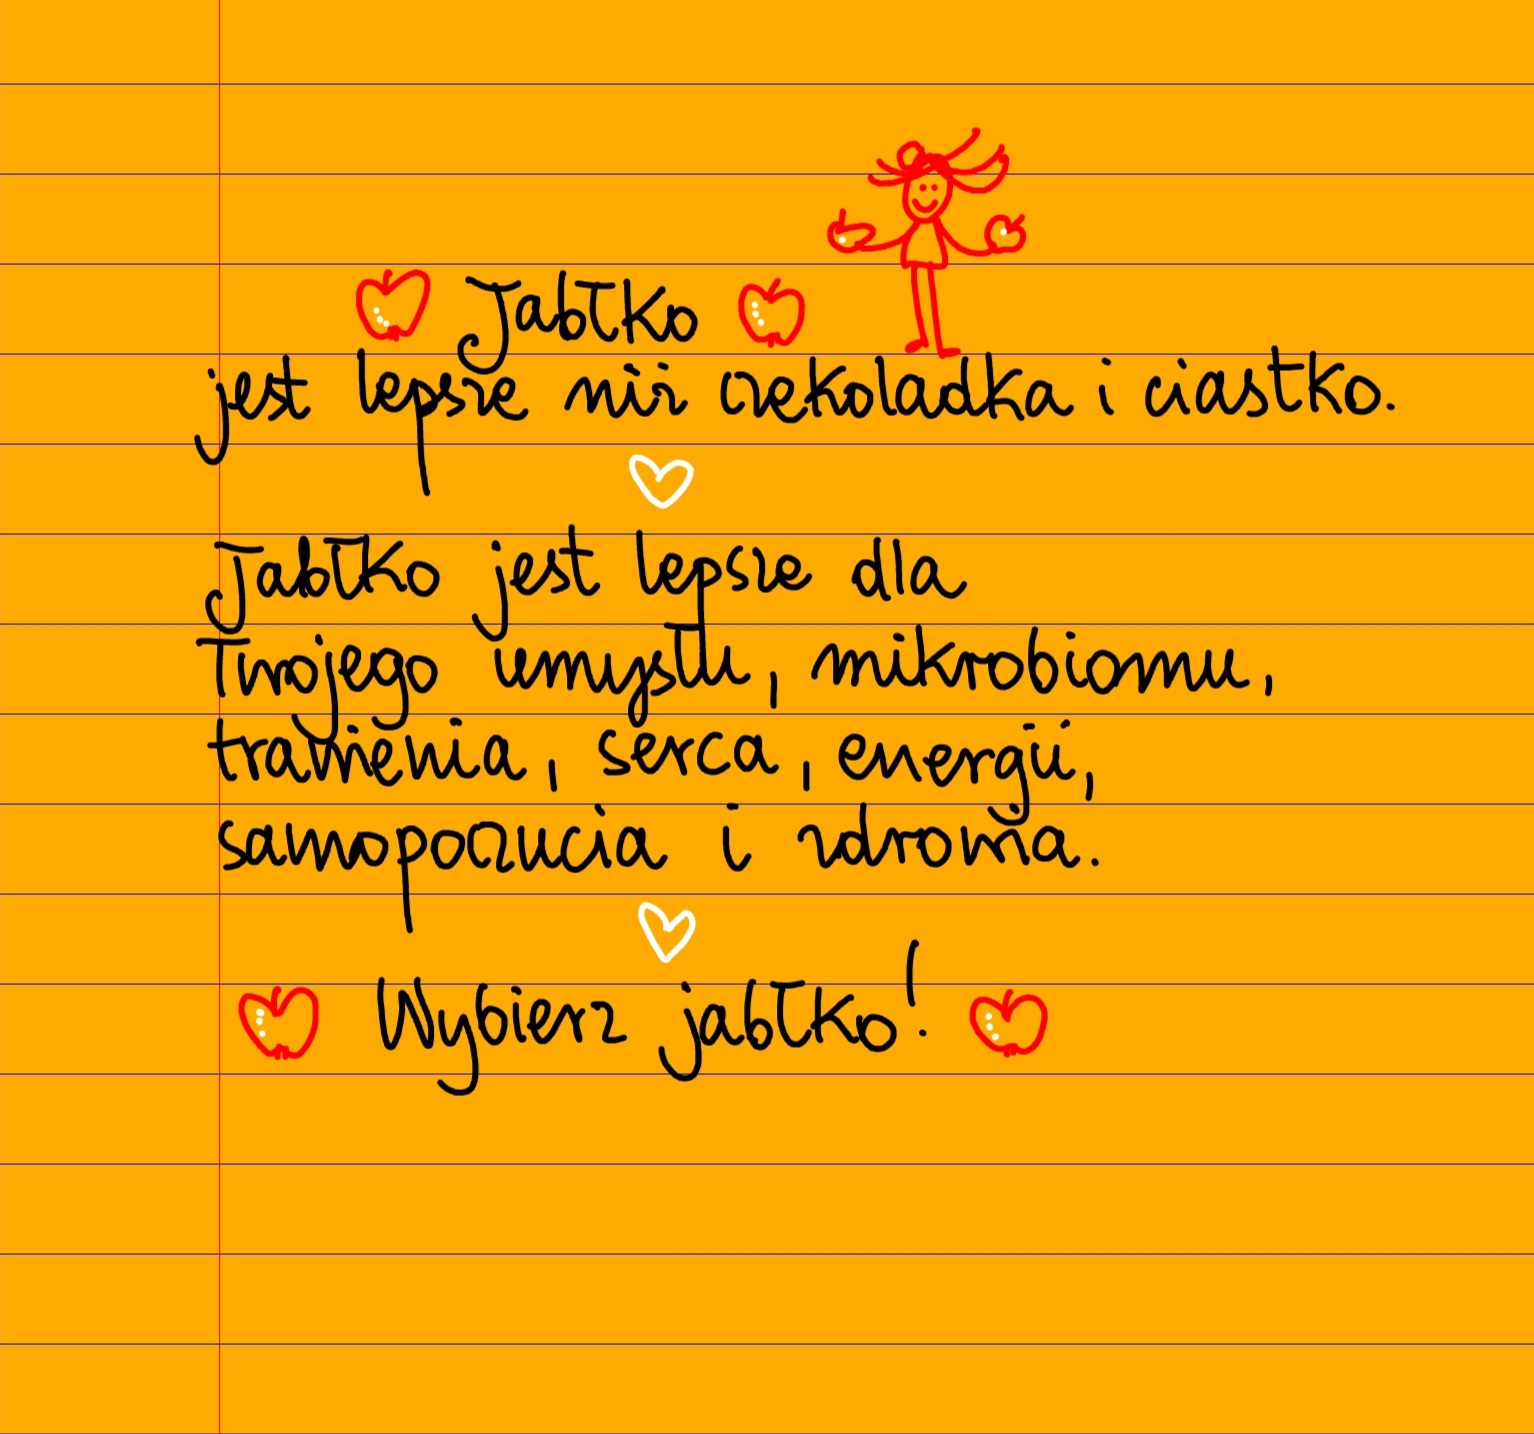 Jabłko
jest lepsze niż czekoladka i ciastko.
Jabłko jest lepsze dla
Twojego umysłu, mikrobiomu,
trawienia, serca, energii,
samopoczucia i zdrowia.
Wybierz jabłko!